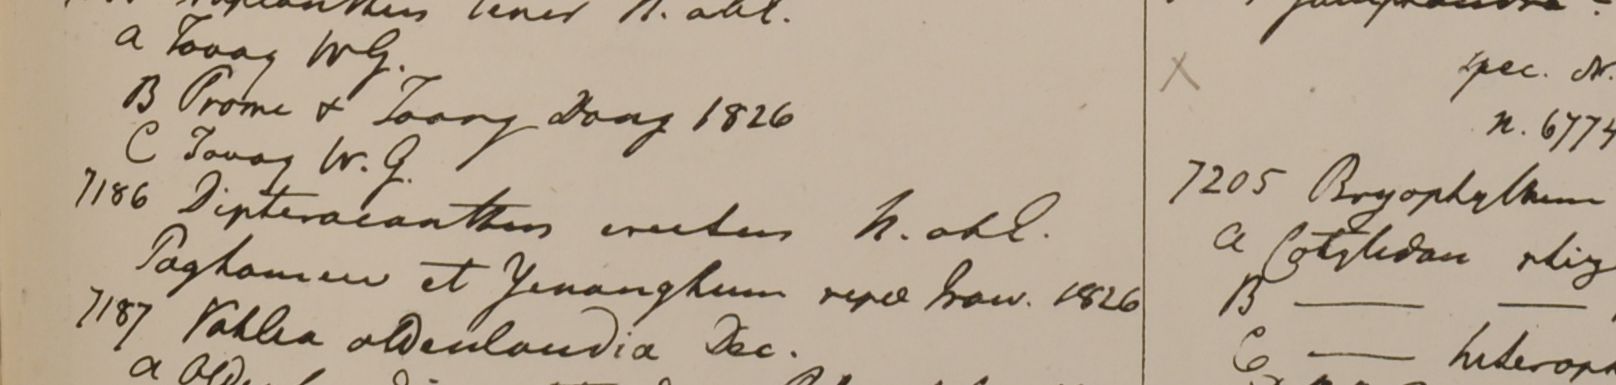 tener N. ab E.
a Tavoy W G.
B Prome & Toong Dong 1826
C Tavoy W. G.
7186 Dipteracanthus erectus N. ab E.
Paghamew et Yenanghuum ripæ Iraw. 1826
7187 Vahlia oldenlandia Dec.
a
spec. N.
n. 6774
7205 Bryophyllum
a Cotyledon rhiz
B — —
C — heteroph